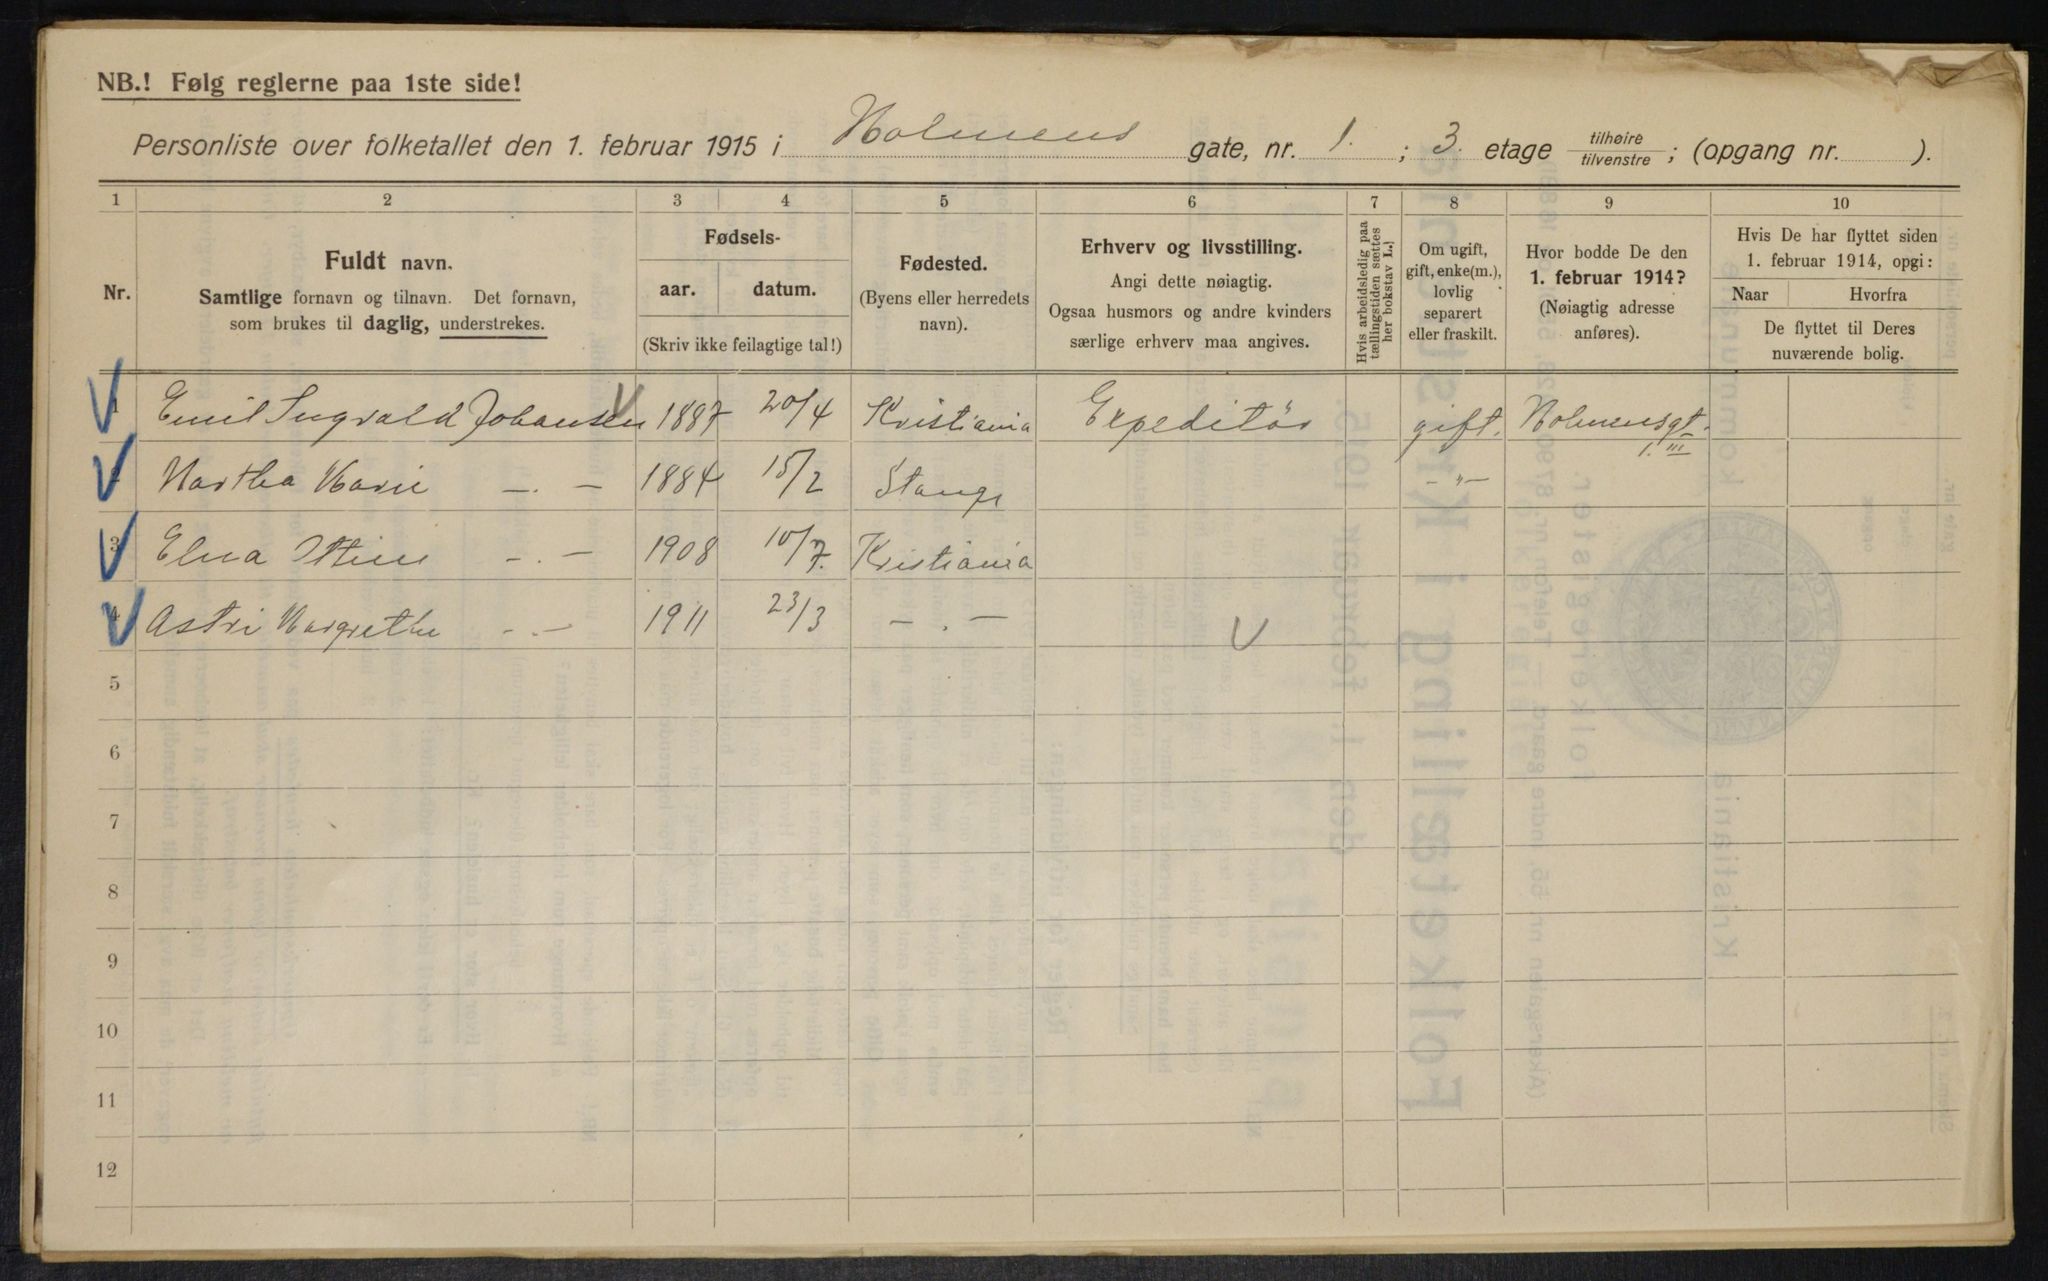 NB.! Følg reglerne paa 1ste side!
Personliste over folketallet den 1. februar 1915 i Holmens gate, nr. 1. ; 3. etage tilhøire tilvenstre ; (opgang nr. ).
1 2 3 4 5 6 7 8 9 10
Nr.
Fuldt navn.
Samtlige fornavn og tilnavn. Det fornavn,
som brukes til daglig, understrekes.
Fødsels-
aar. datum.
(Skriv ikke feilagtige tal!)
Fødested.
(Byens eller herredets
navn).
Erhverv og livsstilling.
Angi dette nøiagtig.
Ogsaa husmors og andre kvinders
særlige erhverv maa angives.
Hvis arbeidsledig paa
tællingstiden sættes
her bokstav L.)
Om ugift,
gift, enke(m.),
lovlig
separert
eller fraskilt.
Hvor bodde De den
1. februar 1914?
(Nøiagtig adresse
anføres).
Hvis De har flyttet siden
1. februar 1914, opgi:
Naar Hvorfra
De flyttet til Deres
nuværende bolig.
1 Emil Ingvald Johansen 1887 20/4 Kristiania Expeditør gift. Holmensgt. 1. III
2 Martha Marie —.— 1884 15/2 Stange —"—
3 Elna —.— 1908 10/7. Kristiania
4 Astri Margrethe —.— 1911 23/3 —.—
5
6
7
8
9
10
11
12